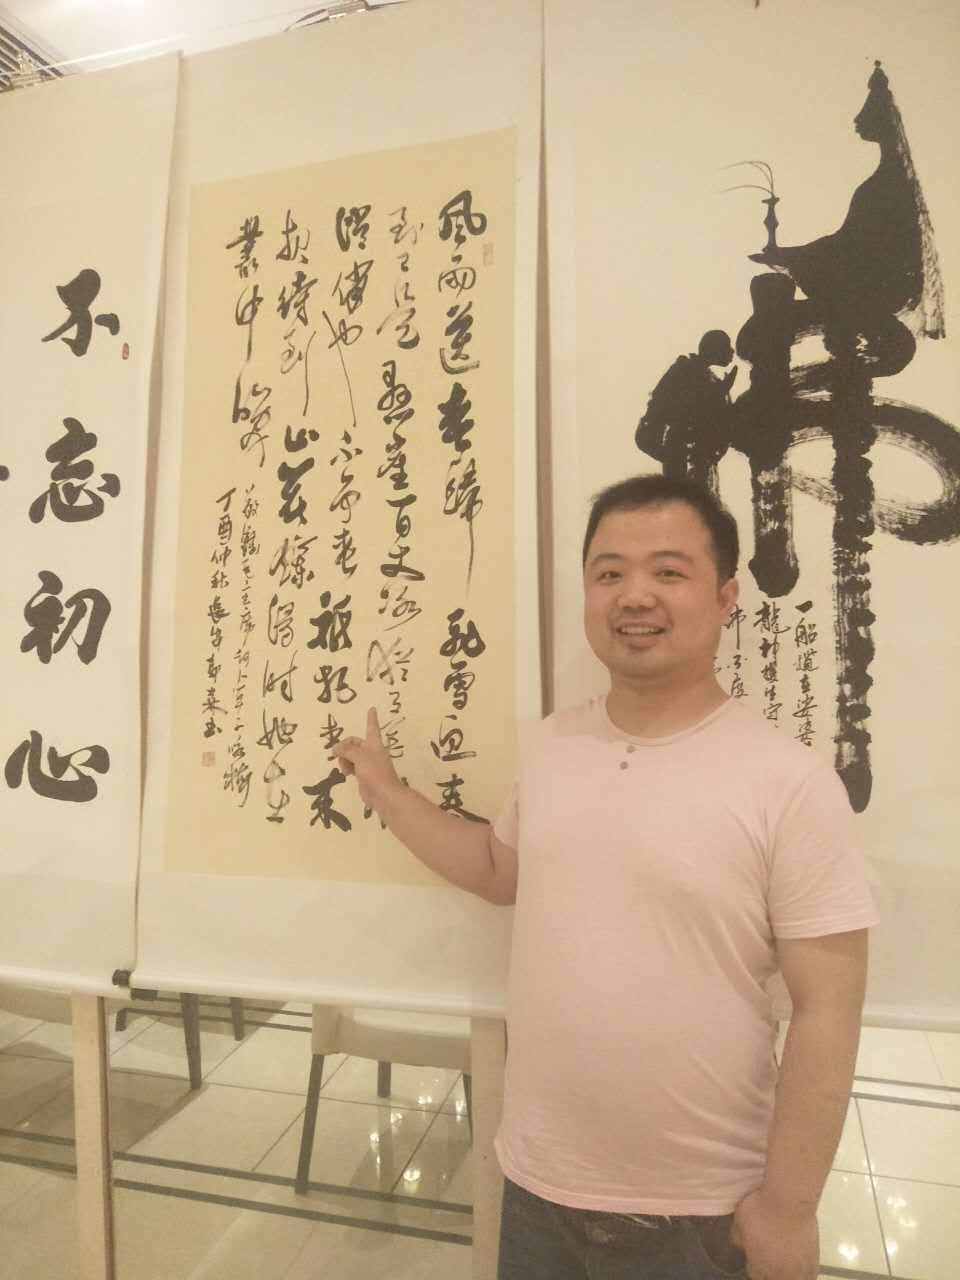 佛
龍神
風雨送春歸飛雪迎春
到已是懸崖百丈冰猶有花
俏俏也不争春祇把春来
報待到山花爛漫时她在
叢中笑
毛主席詞卜算子咏梅
丁酉仲秋長安
不忘初心